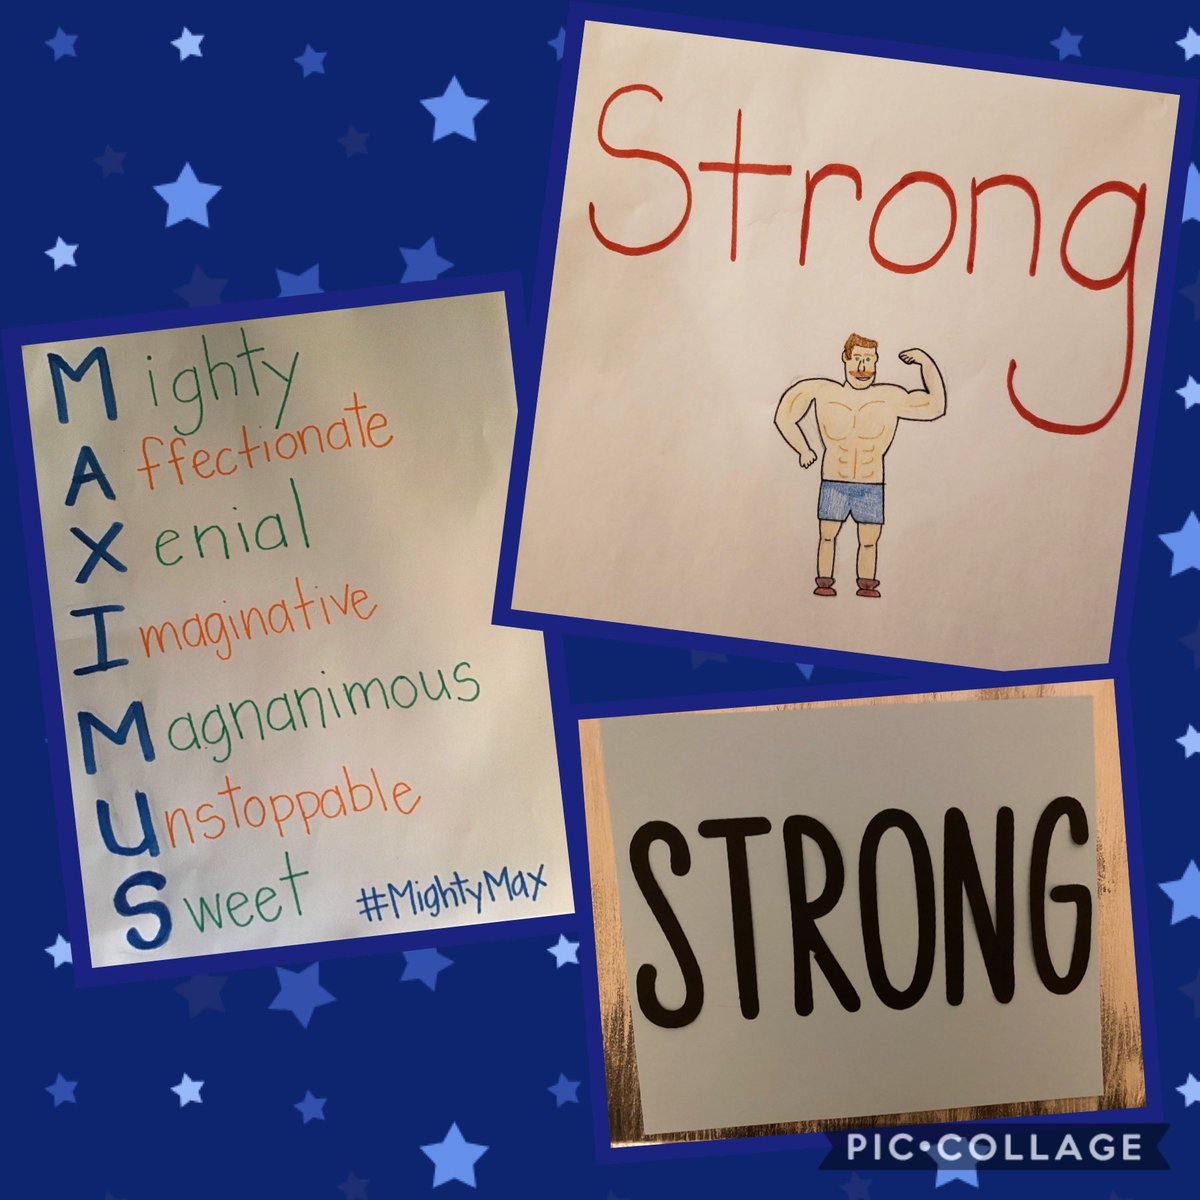 Strong
Mighty
Affectionate
Xenial
Imaginative
Magnanimous
Unstoppable
Sweet #MightyMax
STRONG
PIC•COLLAGE